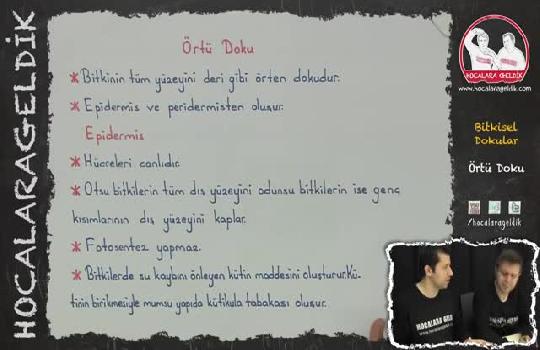 HOCALARAGELDİK
Örtü Doku
* Bitkinin tüm yüzeyini deri gibi örten dokudur.
* Epidermis ve peridermisten oluşur.
Epidermis
* Hücreleri canlıdır.
* Otsu bitkilerin tüm dış yüzeyini odunsu bitkilerin ise genç
kısımlarının dış yüzeyini kaplar.
* Fotosentez yapmaz.
* Bitkilerde su kaybını önleyen kütin maddesini oluşturur. Kü-
tinin birikmesiyle mumsu yapıda kütikula tabakası oluşur.
HOCALARA GELDİK
www.hocalarageldik.com
Bitkisel
Dokular
Örtü Doku
/hocalarageldik
HOCALARA GELDİK